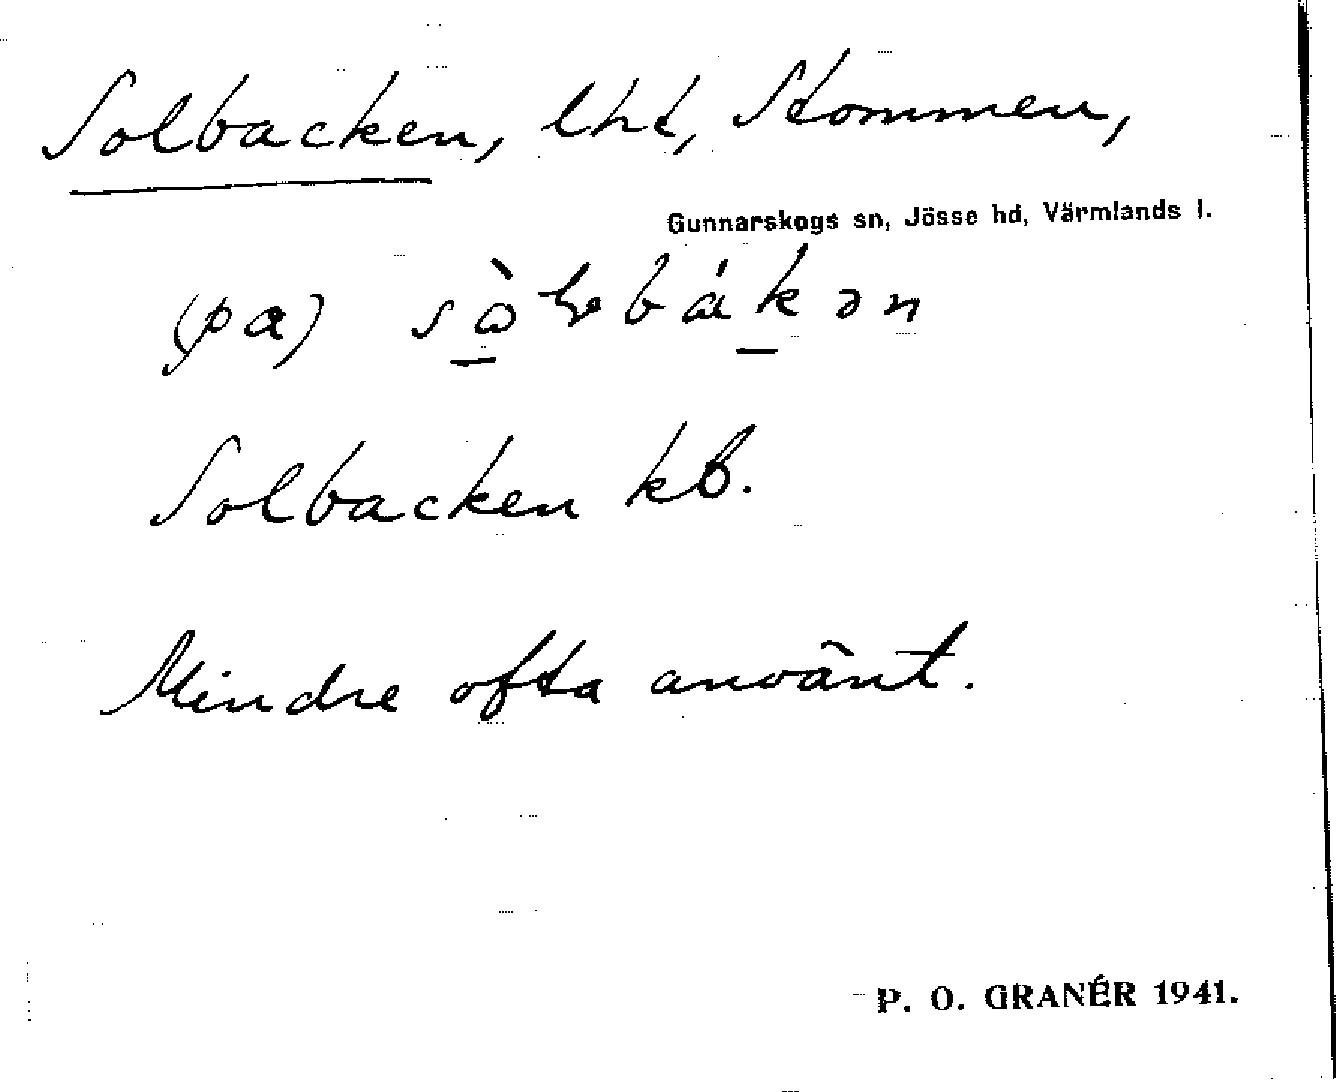 Solbacken, lht, Stommen,
Gunnarskogs sn, Jösse hd, Värmlands l.
(pa)
Solbacken kb.
Mindre ofta använt.
P. O. GRANÉR 1941.